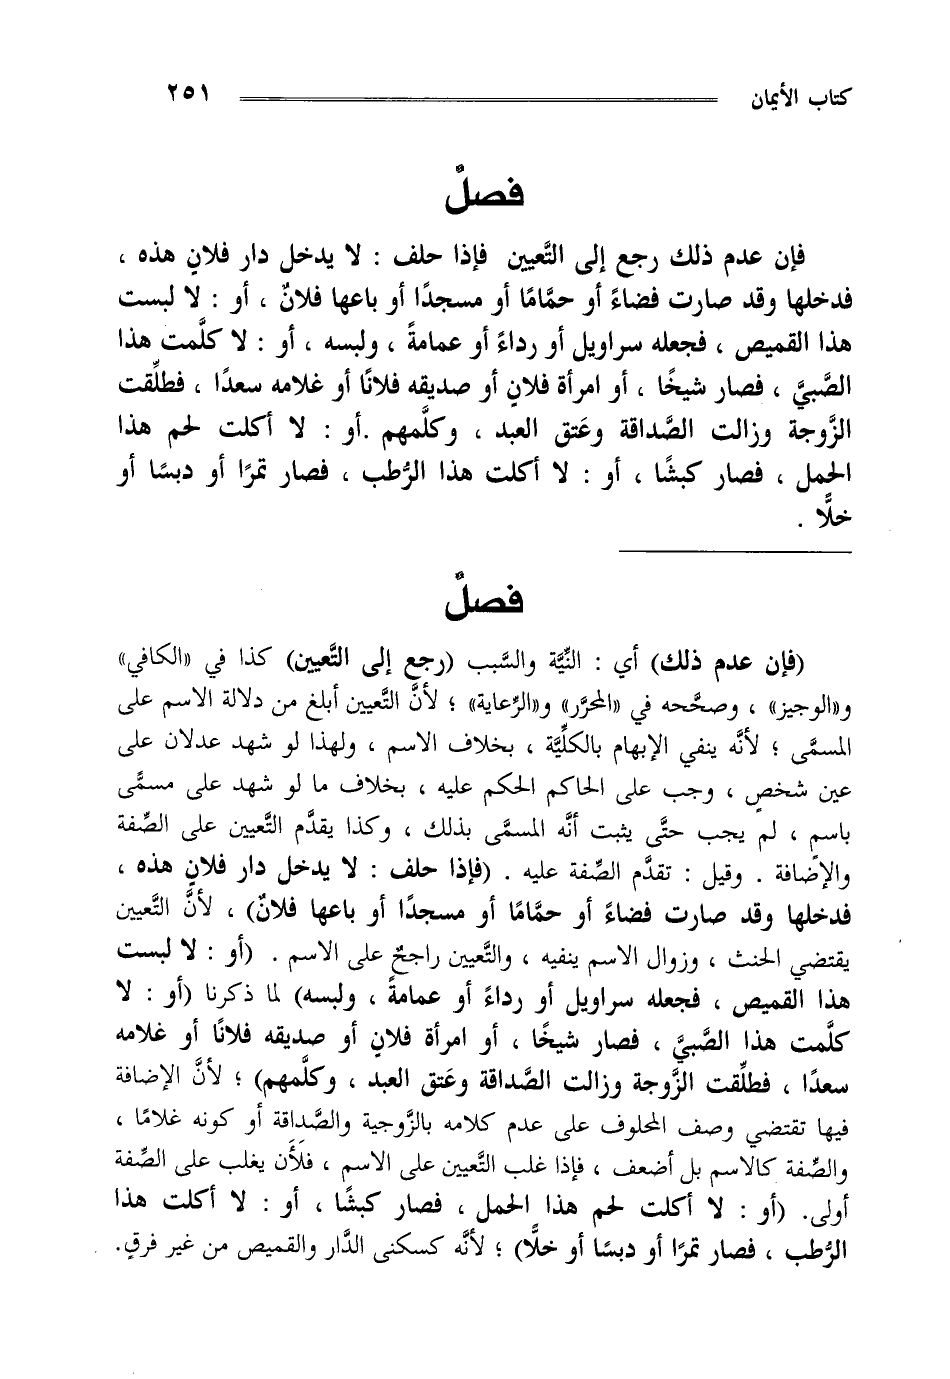 كتاب الأيمان ٢٥١
فصلٌ
فإن عدم ذلك رجع إلى التَّعيين فإذا حلف : لا يدخل دار فلانٍ هذه ،
فدخلها وقد صارت فضاءً أو حمَّامًا أو مسجدًا أو باعها فلانٌ ، أو : لا لبست
هذا القميص ، فجعله سراويل أو رداءً أو عمامةً ، ولبسه ، أو : لا كلَّمت هذا
الصَّبيَّ ، فصار شيخًا ، أو امرأة فلانٍ أو صديقه فلانًا أو غلامه سعدًا ، فطلِّقت
الزَّوجة وزالت الصَّداقة وعَتق العبد ، وكلَّمهم .أو : لا أكلت لحم هذا
الحمل ، فصار كبشًا ، أو : لا أكلت هذا الرُّطب ، فصار تمرًا أو دبسًا أو
خلًّا .
فصلٌ
(فإن عدم ذلك) أي : النِّيَّة والسَّبب (رجع إلى التَّعيين) كذا في «الكافي»
و«الوجيز» ، وصحَّحه في «المحرَّر» و«الرِّعاية» ؛ لأنَّ التَّعيين أبلغ من دلالة الاسم على
المسمَّى ؛ لأنَّه ينفي الإبهام بالكلِّيَّة ، بخلاف الاسم ، ولهذا لو شهد عدلان على
عين شخصٍ ، وجب على الحاكم الحكم عليه ، بخلاف ما لو شهد على مسمَّى
باسمٍ ، لم يجب حتَّى يثبت أنَّه المسمَّى بذلك ، وكذا يقدَّم التَّعيين على الصِّفة
والإضافة . وقيل : تقدَّم الصِّفة عليه . (فإذا حلف : لا يدخل دار فلانٍ هذه ،
فدخلها وقد صارت فضاءً أو حمَّامًا أو مسجدًا أو باعها فلانٌ) ، لأنَّ التَّعيين
يقتضي الحنث ، وزوال الاسم ينفيه ، والتَّعيين راجحٌ على الاسم . (أو : لا لبست
هذا القميص ، فجعله سراويل أو رداءً أو عمامةً ، ولبسه) لما ذكرنا (أو : لا
كلَّمت هذا الصَّبيَّ ، فصار شيخًا ، أو امرأة فلانٍ أو صديقه فلانًا أو غلامه
سعدًا ، فطلِّقت الزَّوجة وزالت الصَّداقة وعَتق العبد ، وكلَّمهم) ؛ لأنَّ الإضافة
فيها تقتضي وصف المحلوف على عدم كلامه بالزَّوجية والصَّداقة أو كونه غلامًا ،
والصِّفة كالاسم بل أضعف ، فإذا غلب التَّعيين على الاسم ، فلأَن يغلب على الصِّفة
أولى. (أو : لا أكلت لحم هذا الحمل ، فصار كبشًا ، أو : لا أكلت هذا
الرُّطب ، فصار تمرًا أو دبسًا أو خلًّا) ؛ لأنَّه كسكنى الدَّار والقميص من غير فرقٍ.